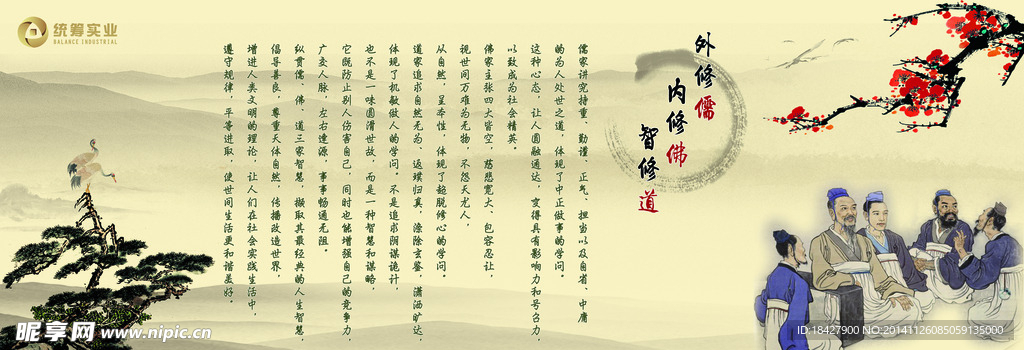 统筹实业
BALANCE INDUSTRIAL
外修儒
内修佛
智修道
儒家讲究持重、勤谨、正气、担当以及自省、中庸
的为人处世之道，体现了中正做事的学问。
这种心态，让人圆融通达，变得具有影响力和号召力，
以致成为社会精英。
佛家主张四大皆空，慈悲宽大、包容忍让，
视世间万难为无物，不怨天尤人，
从自然，呈本性，体现了超脱修心的学问。
道家追求自然无为、返璞归真，涤除玄鉴，潇洒旷达，
体现了机敏做人的学问。不是追求阴谋诡计，
也不是一味圆滑世故，而是一种智慧和谋略，
它既防止别人伤害自己，同时也能增强自己的竞争力，
广交人脉，左右逢源，事事畅通无阻。
纵贯儒、佛、道三家智慧，撷取其最经典的人生智慧，
倡导善良，尊重天体自然，传播改造世界，
增进人类文明的理论，让人们在社会实践生活中，
遵守规律，平等进取，使世间生活更和谐美好。
昵享网 www.nipic.cn
ID:18427900 NO:20141126085059135000